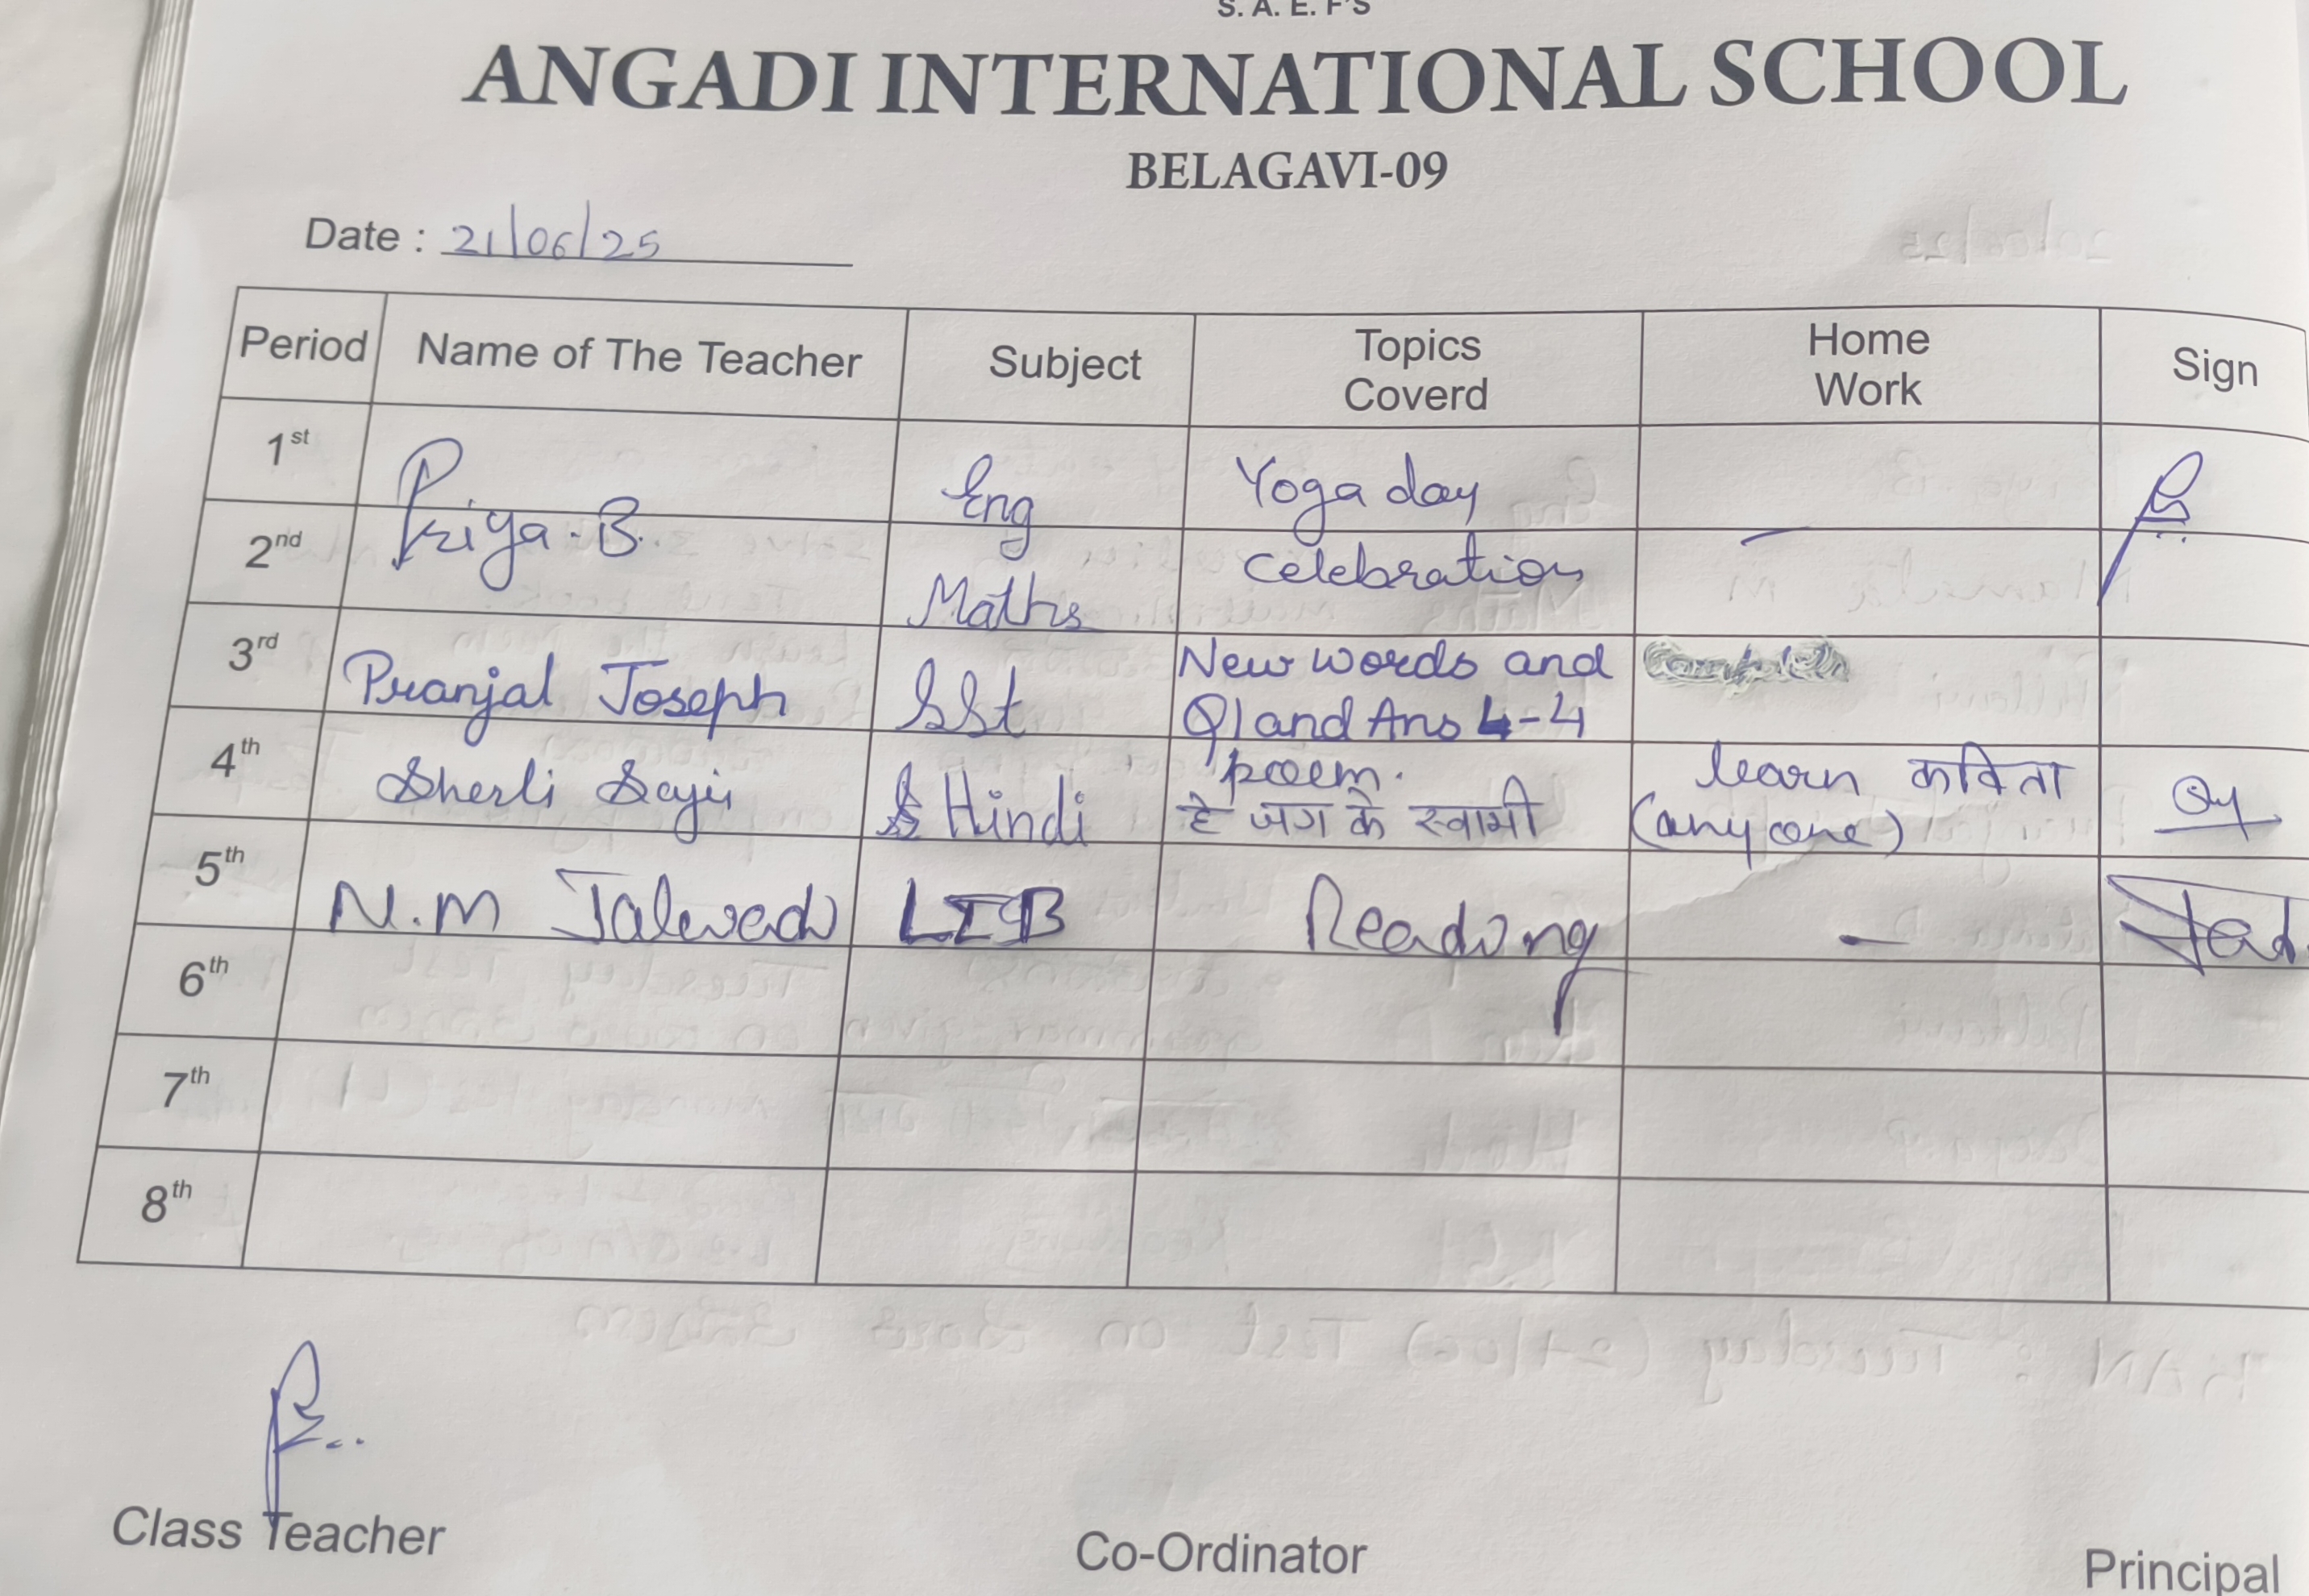 S. A. E. F'S
ANGADI INTERNATIONAL SCHOOL
BELAGAVI-09
Date : 21/06/25
Period Name of The Teacher Subject Topics Coverd Home Work Sign
1st Priya. B. Eng Yoga day
2nd Maths celebration —
3rd Pranjal Joseph SSt New words and
Q1 and Ans 4-4
4th Sherli Saju Hindi poem. learn कविता
हे जग के स्वामी (any one)
5th N.M Jalwadi LIB Reading —
6th
7th
8th
Class Teacher Co-Ordinator Principal